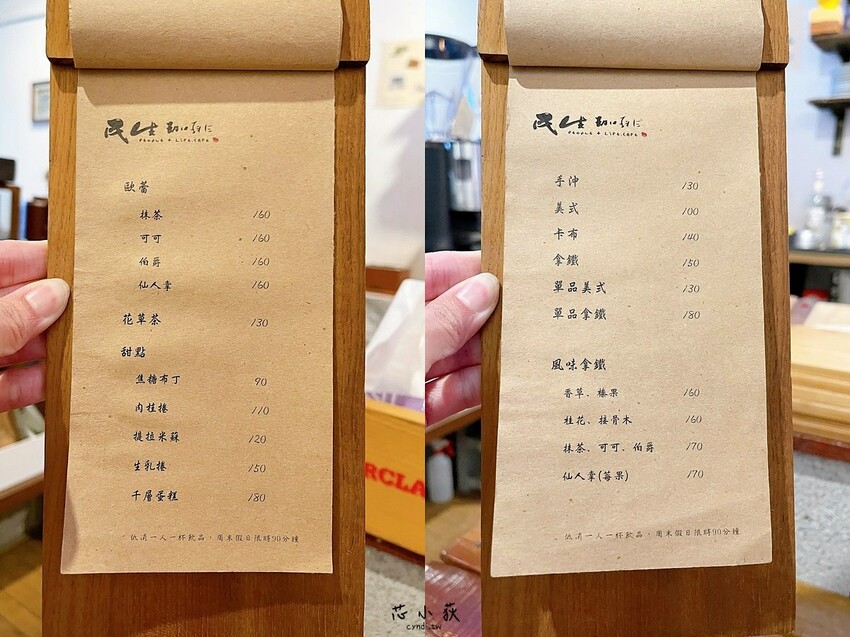 民生
PEOPLE + LIFE.CAFE
歐蕾
抹茶 160
可可 160
伯爵 160
仙人掌 160
花草茶 130
甜點
焦糖布丁 90
肉桂捲 110
提拉米蘇 120
生乳捲 150
千層蛋糕 180
低消一人一杯飲品，周末假日限時90分鐘
RCLA
民生
PEOPLE + LIFE.CAFE
手沖 130
美式 100
卡布 140
拿鐵 150
單品美式 130
單品拿鐵 180
風味拿鐵
香草、榛果 160
桂花、接骨木 160
抹茶、可可、伯爵 170
仙人掌(莓果) 170
低消一人一杯飲品，周末假日限時90分鐘
芯小荻
cyndi.tw